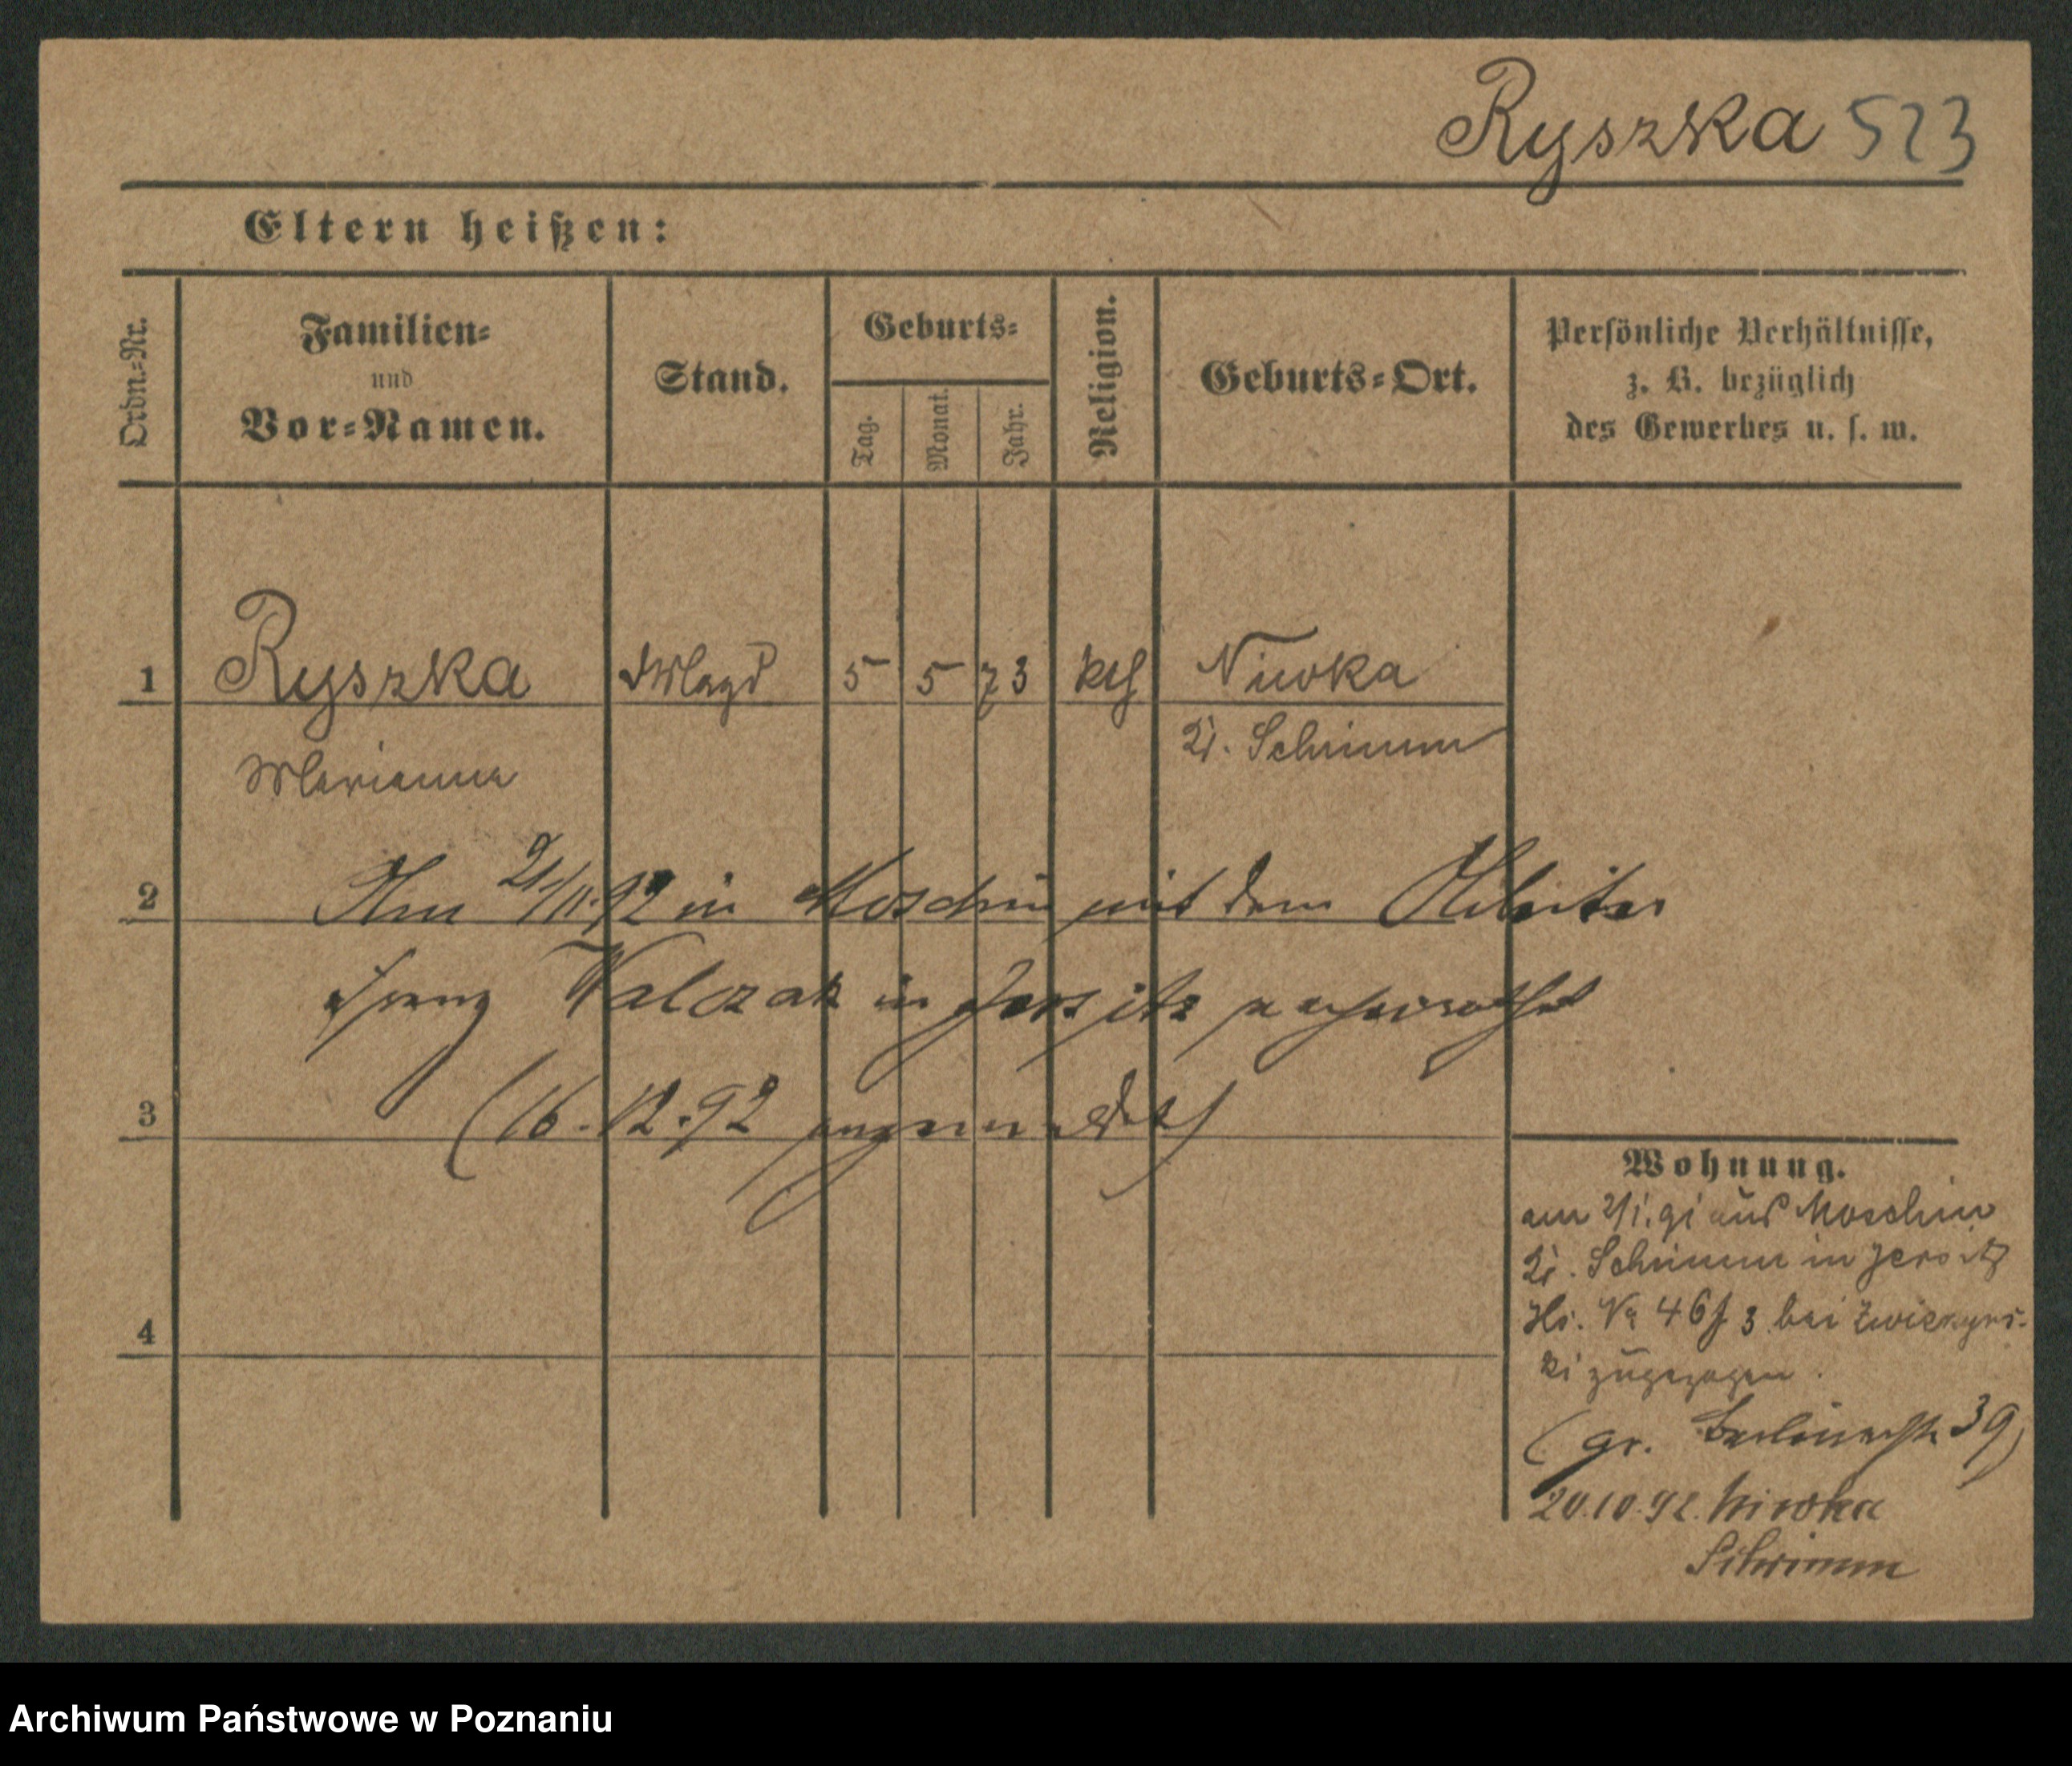 Ryszka 523
Eltern heißen:
Ordn.-Nr.
Familien-
und
Vor-Namen.
Stand.
Geburts-
Tag.
Monat.
Jahr.
Religion.
Geburts-Ort.
Persönliche Verhältnisse,
z. B. bezüglich
des Gewerbes u. s. w.
1 Ryszka Magd 5 5 73 kth Niwka
Marianna Kr. Schrimm
2 Am 21/11.92 in Moschin mit dem Arbeiter
Franz Walczak in Jersitz verheirathet
3 (16.12.92 angemeldet)
4
Wohnung.
am 2/1.91 aus Moschin
Kr. Schrimm in Jersitz
Hs. No 46 3 bei
ki zugezogen.
(gr. Berlinerstr 39)
20.10.92. Niwka
Schrimm
Archiwum Państwowe w Poznaniu